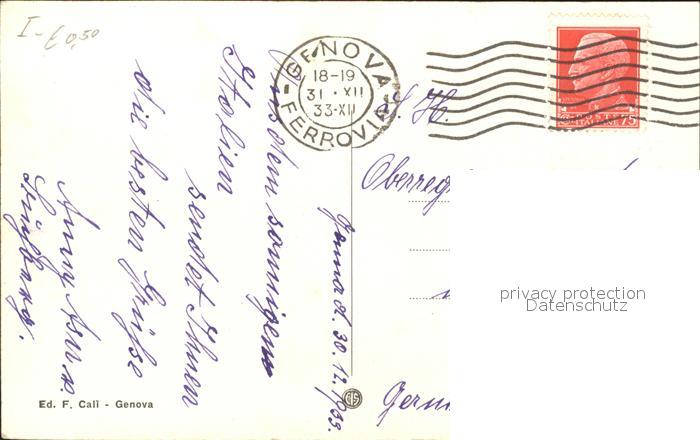 I-€ 0,50
GENOVA
18-19
31 · XII
33·XII
FERROVIA
75
S. H.
Oberreg
Germ
Genua d. 30.12.1933.
Aus dem sonnigen
Italien
sendet Ihnen
die besten Grüße
Anny
privacy protection
Datenschutz
Ed. F. Calì - Genova